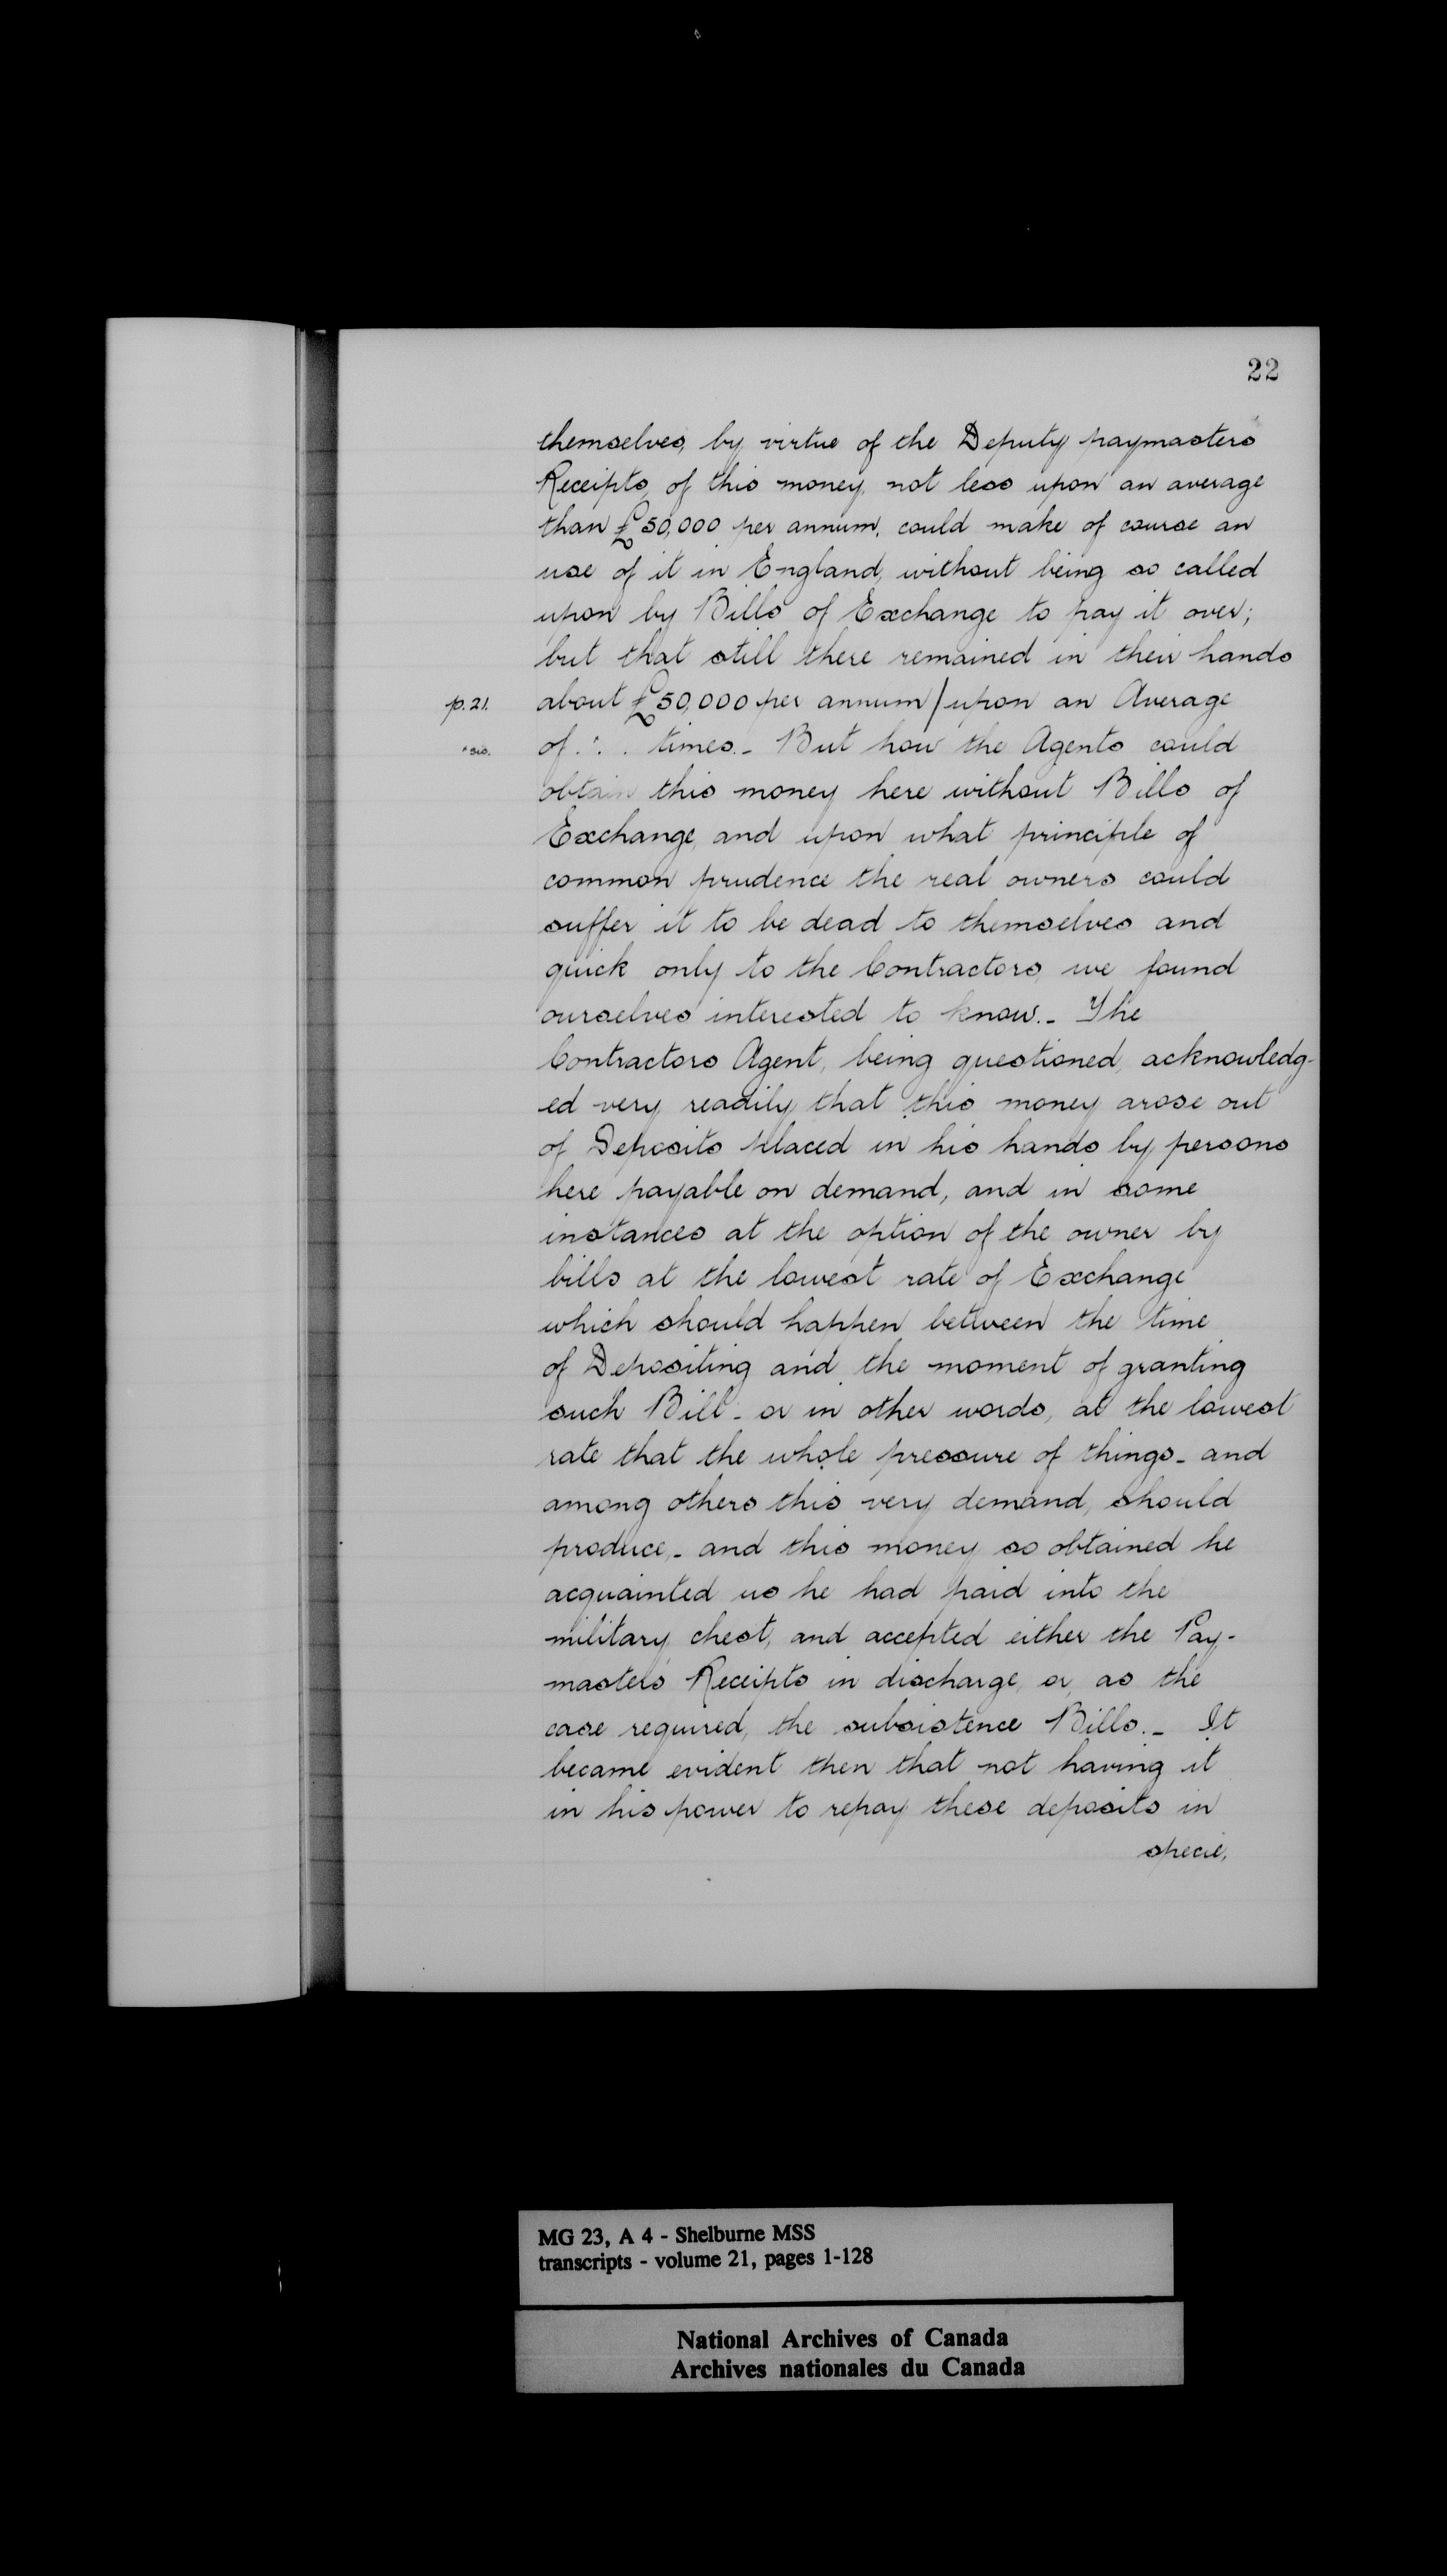 22
themselves, by virtue of the Deputy paymasters
Receipts, of this money, not less upon an average
than £50,000 per annum, could make of course an
use of it in England, without being so called
upon by Bills of Exchange to pay it over;
but that still there remained in their hands
p. 21. about £50,000 per annum/upon an Average
*sic. of . * . . times._ But how the Agents could
obtain this money here without Bills of
Exchange, and upon what principle of
common prudence the real owners could
suffer it to be dead to themselves and
quick only to the Contractors, we found
ourselves interested to know._ The
Contractors Agent, being questioned, acknowledg-
ed very readily that this money arose out
of Deposits placed in his hands by persons
here payable on demand, and in some
instances at the option of the owner by
bills at the lowest rate of Exchange
which should happen between the time
of Depositing and the moment of granting
such Bill - or in other words, at the lowest
rate that the whole pressure of things - and
among others this very demand, should
produce, - and this money so obtained he
acquainted us he had paid into the
military chest, and accepted either the Pay-
masters Receipts in discharge, or, as the
case required, the subsistence Bills._ It
became evident then that not having it
in his power to repay these deposits in
specie,
MG 23, A 4 - Shelburne MSS
transcripts - volume 21, pages 1-128
National Archives of Canada
Archives nationales du Canada